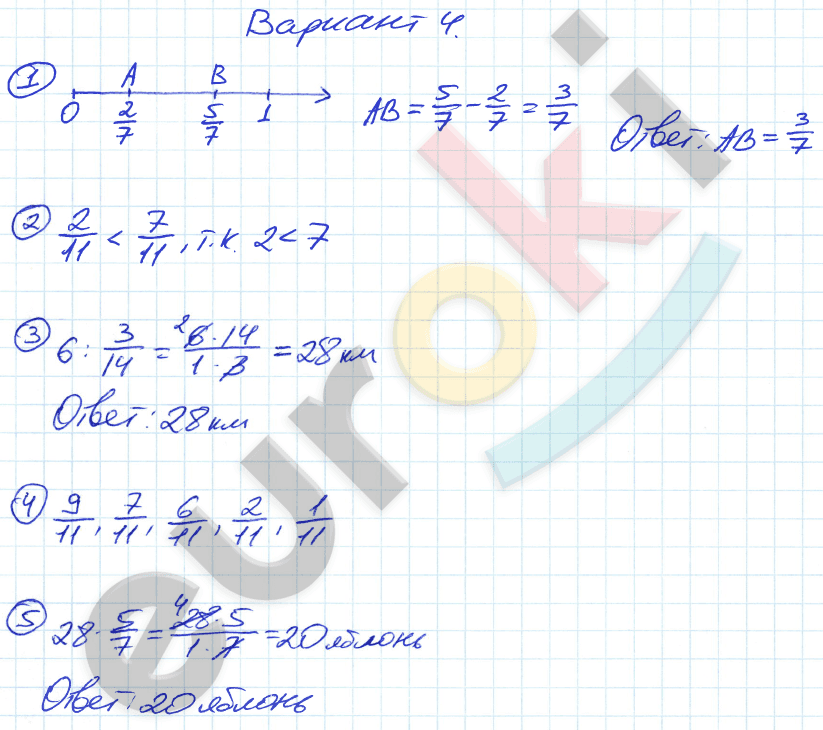 Вариант 4.
1 A B
0 2/7 5/7 1
AB = 5/7 - 2/7 = 3/7
Ответ: AB = 3/7
2 2/11 < 7/11, т.к. 2 < 7
3 6 : 3/14 = 2 6·14/1·3 = 28 км
Ответ: 28 км
4 9/11, 7/11, 6/11, 2/11, 1/11
5 28 · 5/7 = 4 28·5/1·7 = 20 яблонь
Ответ: 20 яблонь
euroki